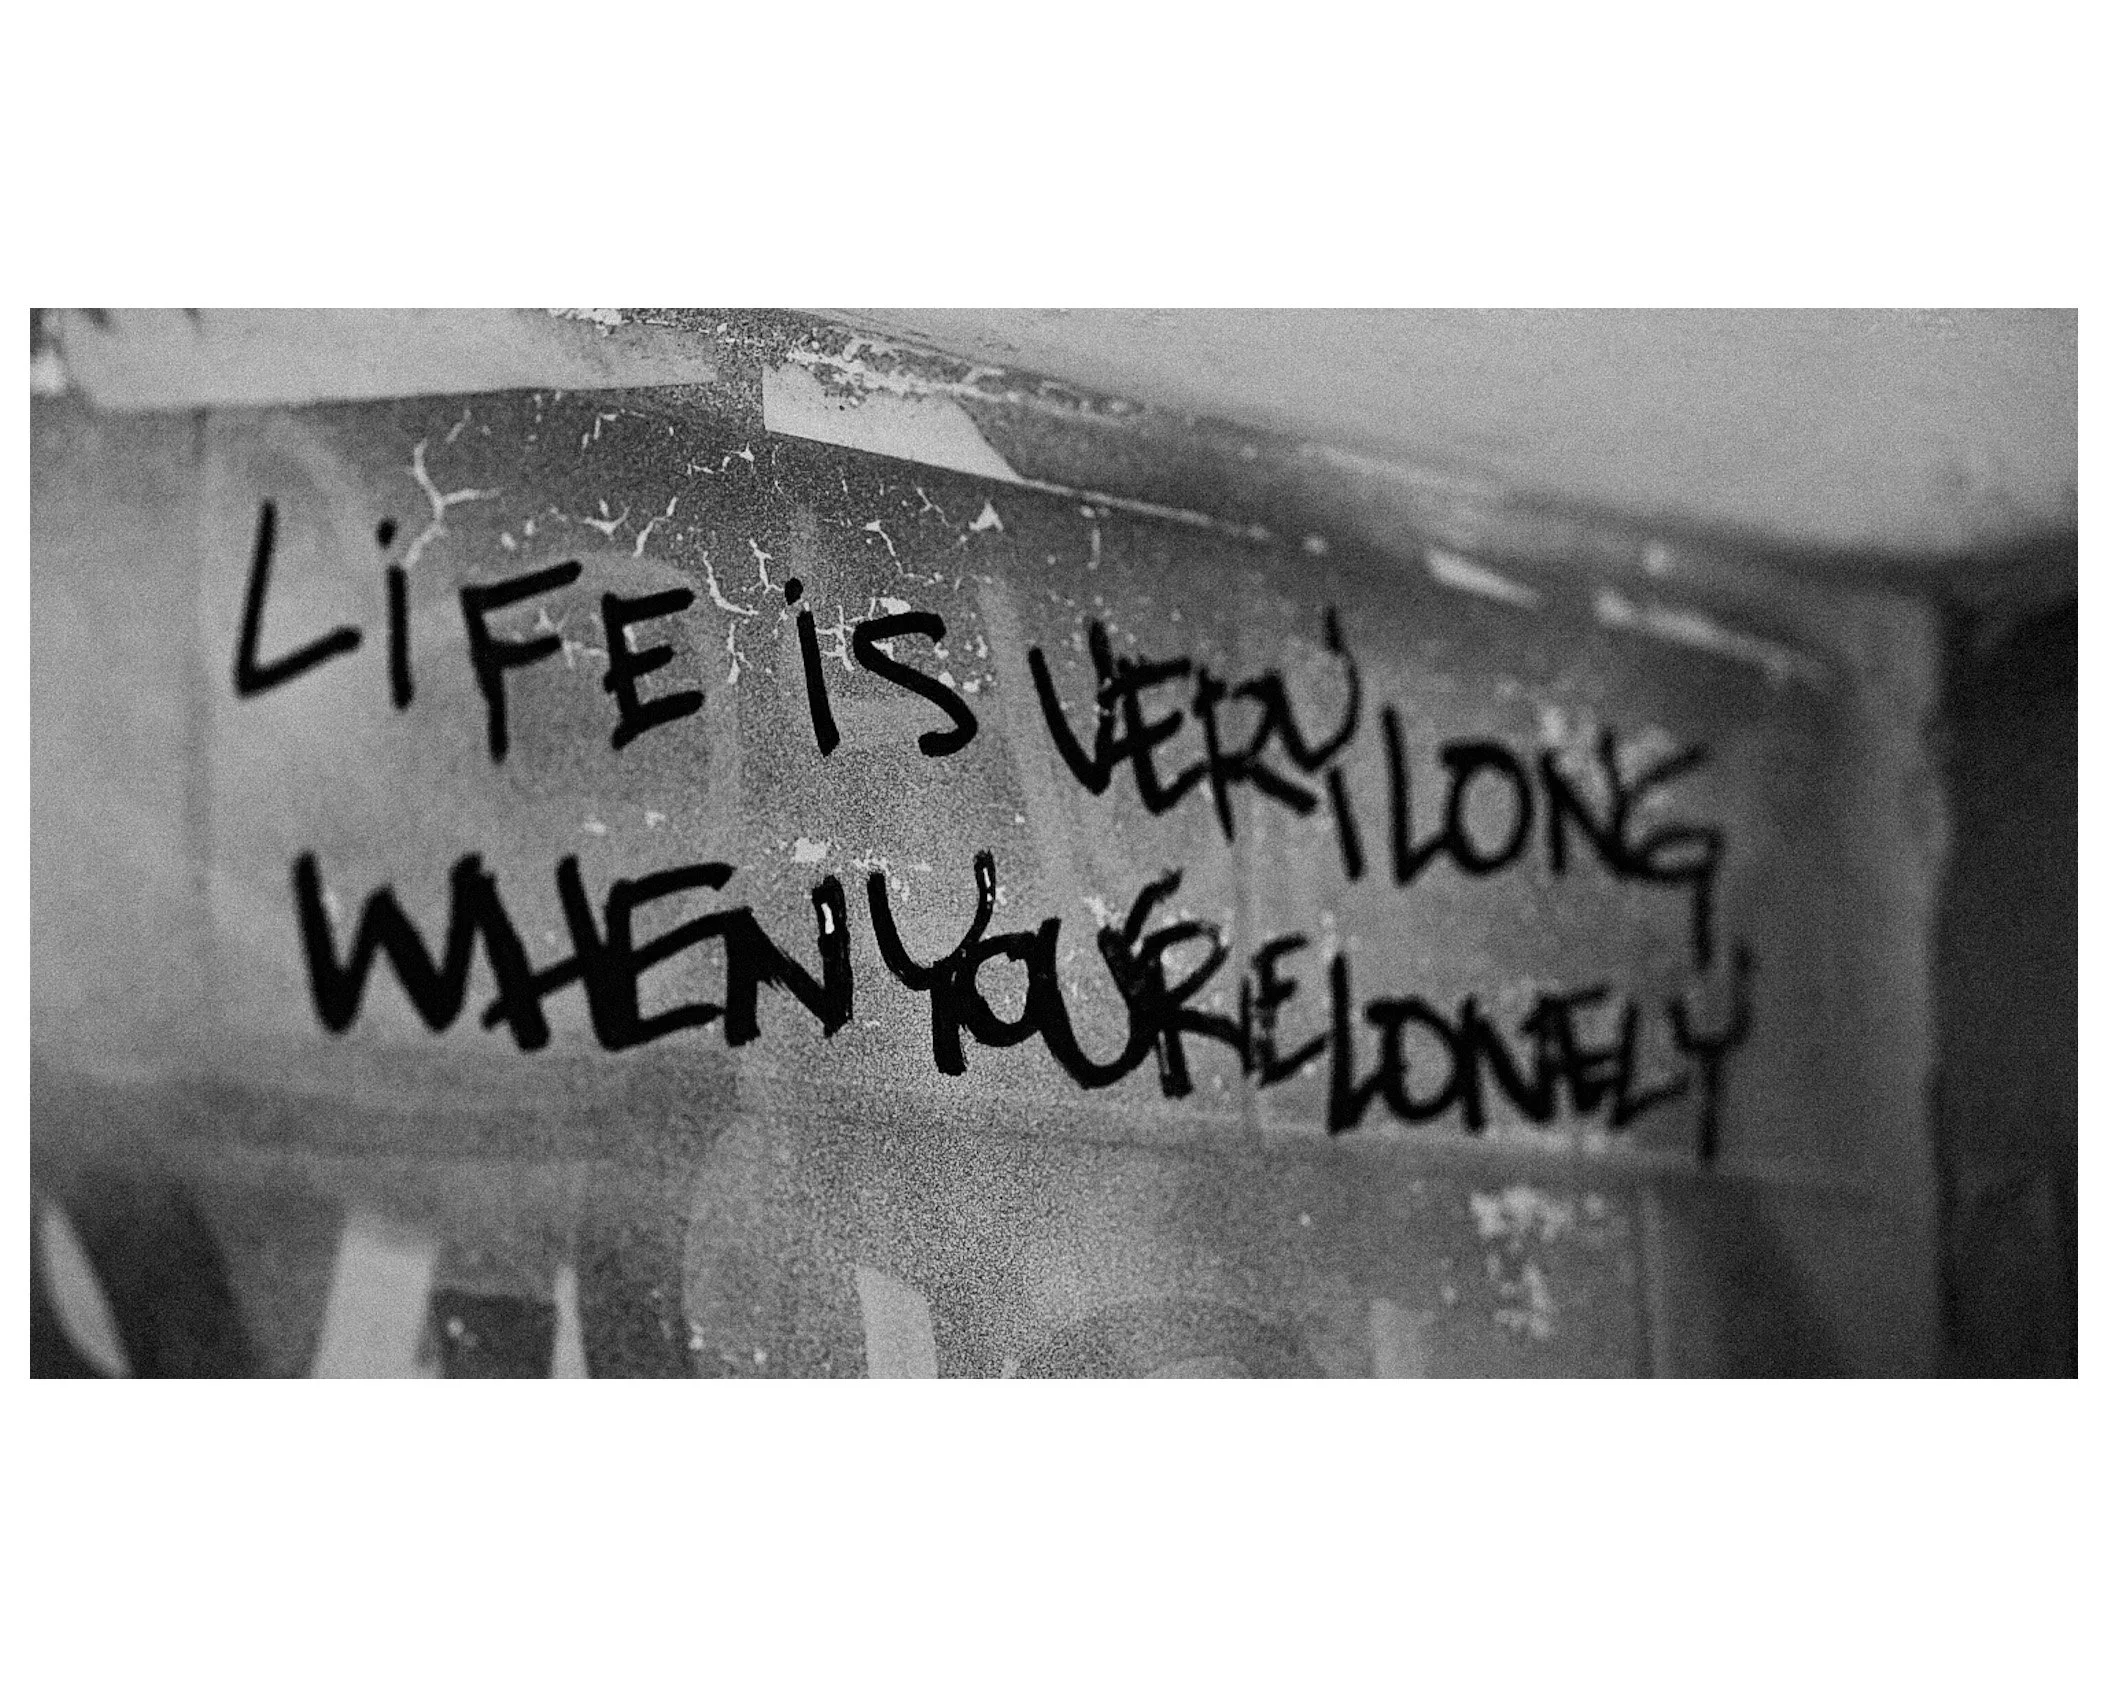 LiFE iS VERY LONG
WHEN YOU'RE LONELY